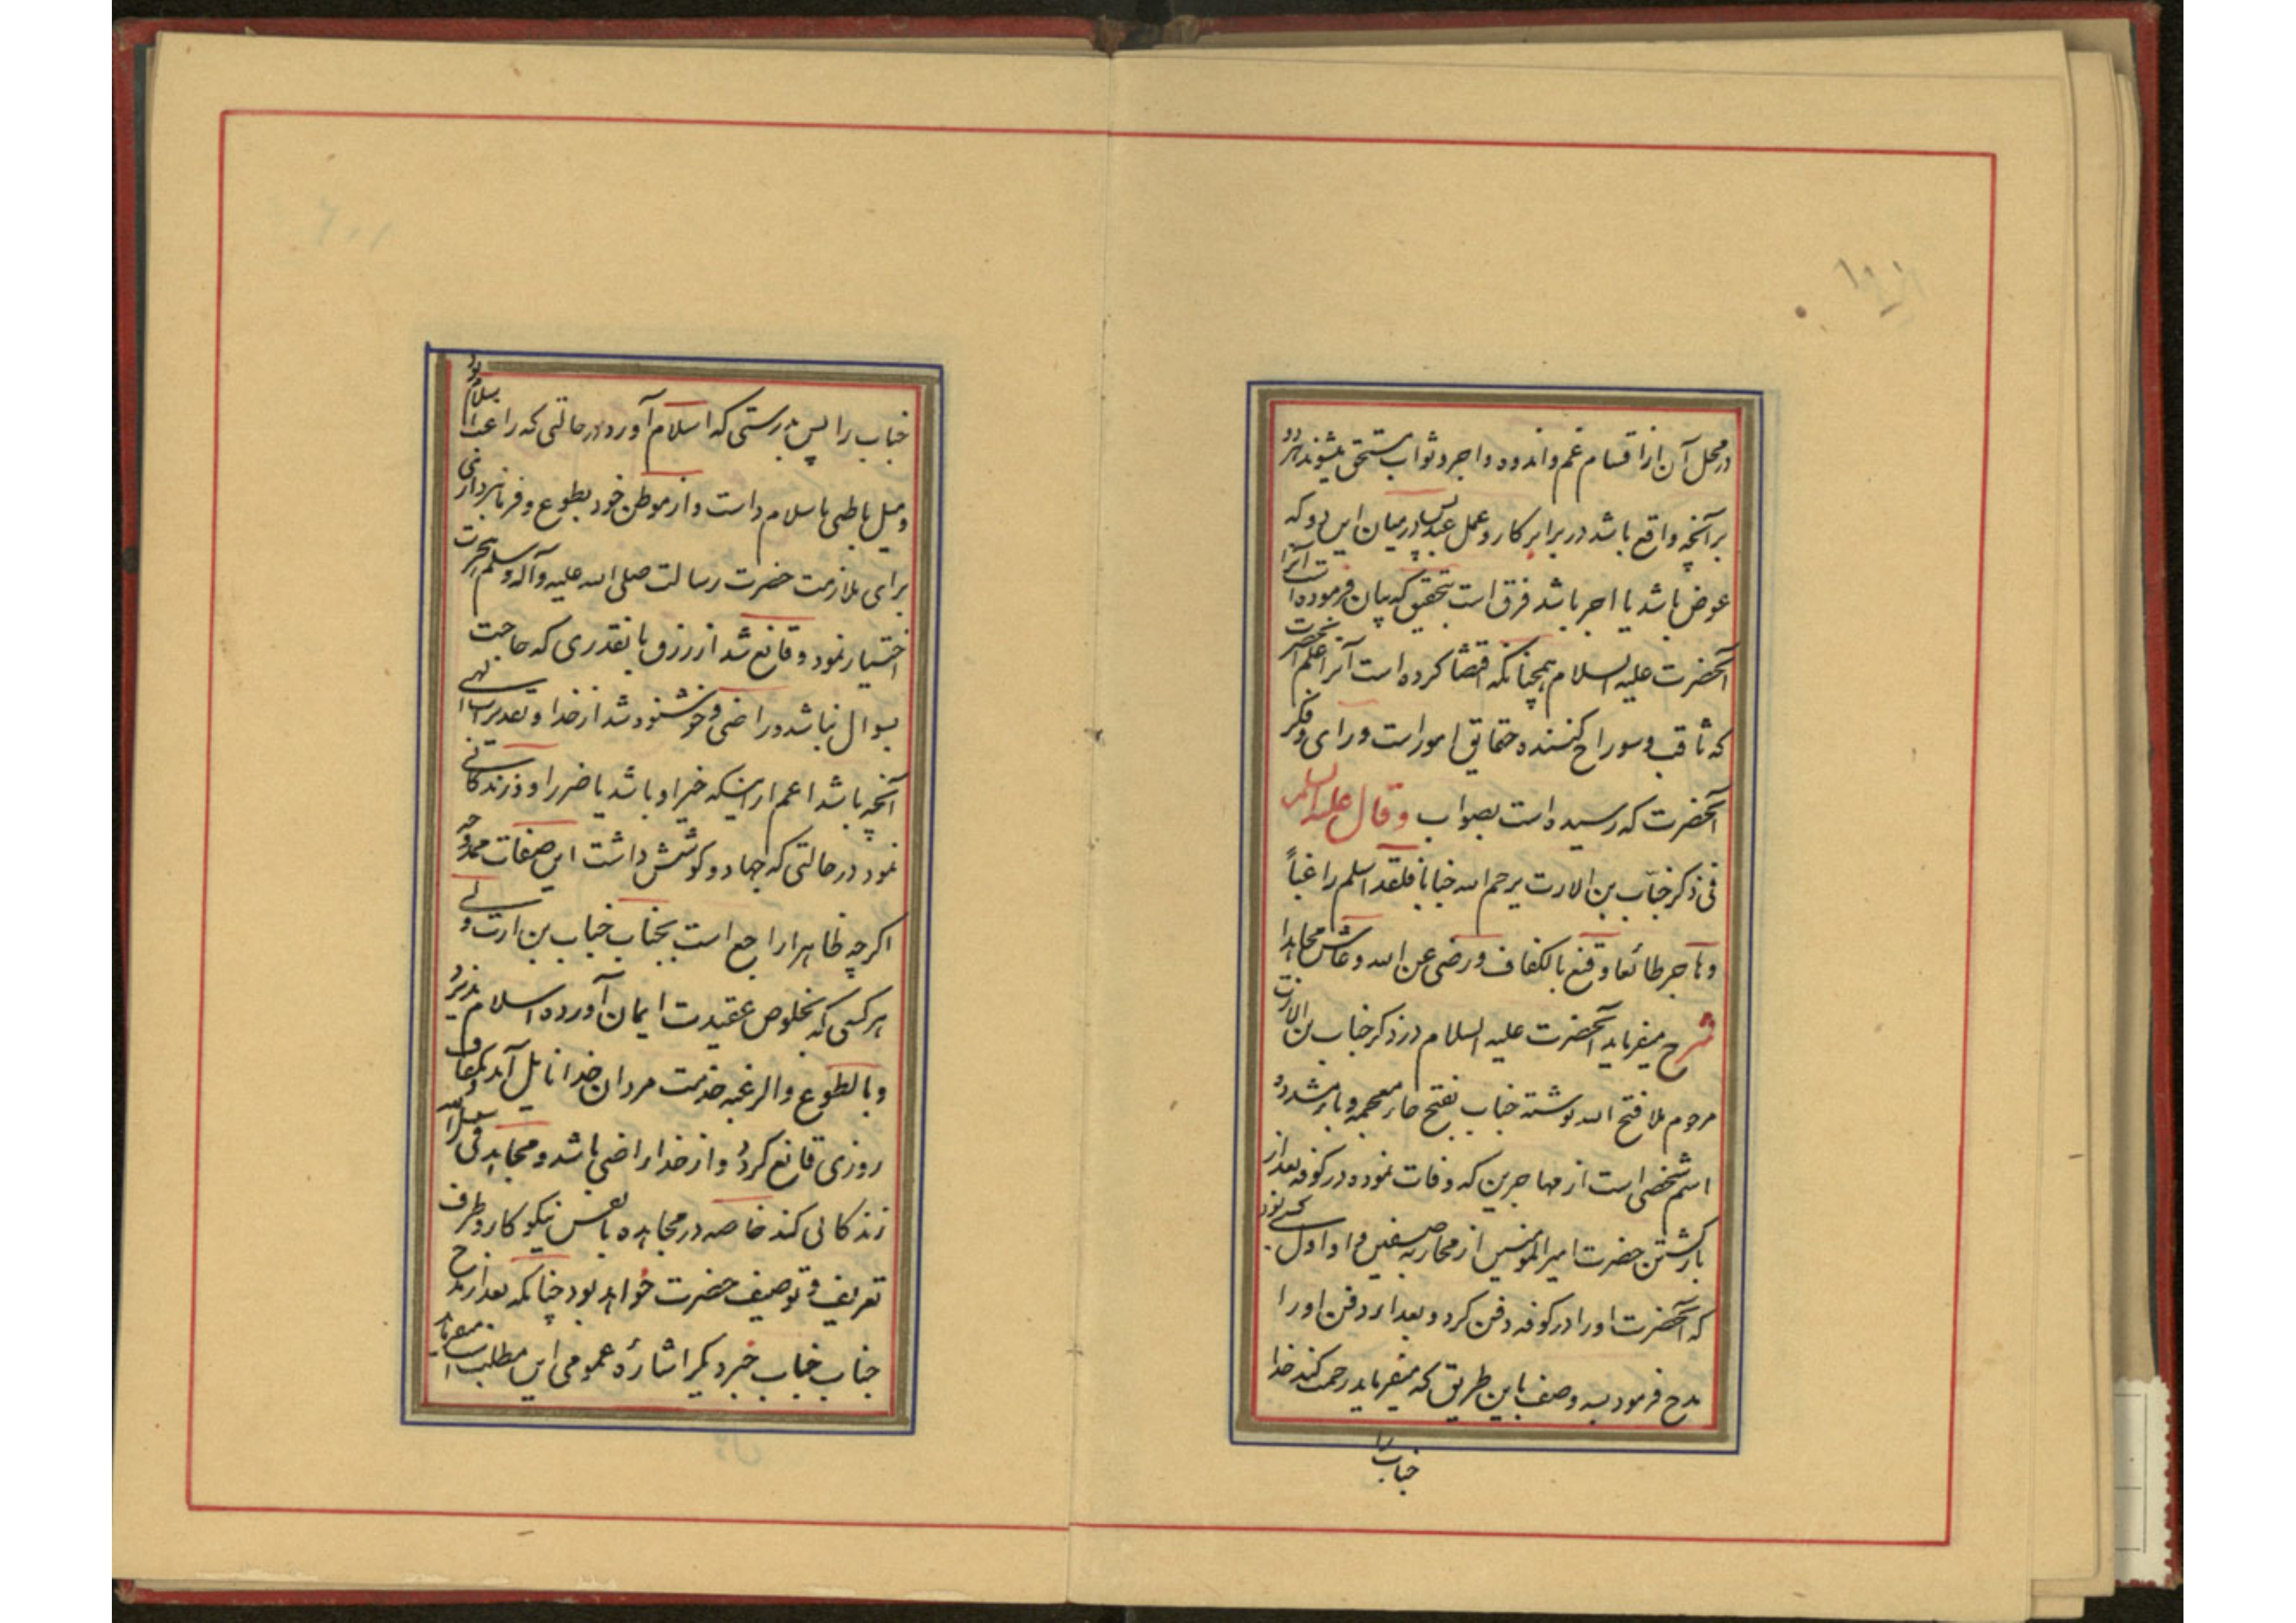 در محل آن از اقسام غم و اندوه و اجر و ثواب مستحق میشوند هر دو
بر آنچه واقع باشد در برابر کار و عمل عبد پس در میان این دو که
عوض باشد یا اجر باشد فرق است بتحقیق که بیان فرموده است آنرا
آنحضرت علیه السلام همچنانکه اقتضا کرده است آنرا علم آنحضرت
که ثاقب و سوراخ کننده حقایق امور است و رای و فکر
آنحضرت که رسیده است بصواب وقال علیه السلم
فی ذکر خبّاب بن الارت یرحم الله خبابا فلقد اسلم راغباً
وهاجر طائعا وقنع بالکفاف ورضی عن الله وعاش مجاهدا
شرح میفرماید آنحضرت علیه السلام در ذکر خباب بن الارت
مرحوم ملا فتح الله نوشته خباب بفتح خاء معجمه و باء مشدده
اسم شخصی است از مهاجرین که وفات نموده در کوفه بعد از
بازگشتن حضرت امیر المومنین از محاربه صفین و او اول کسی بود
که آنحضرت او را در کوفه دفن کرد و بعد از دفن او را
مدح فرمود به وصف باین طریق که میفرماید رحمت کند خدا
خباب را
خباب را پس بدرستی که اسلام آورد در حالتی که راغب باسلام بود
و میل باطنی باسلام داشت و از موطن خود بطوع و فرمانبرداری
برای ملازمت حضرت رسالت صلی الله علیه وآله وسلم هجرت
اختیار نمود و قانع شد از رزق بانقدری که حاجت
بسوال نباشد و راضی و خوشنود شد از خدا و تقدیرات الهی
آنچه باشد اعم از اینکه خیر او باشد یا ضرر او و زندگانی
نمود در حالتی که جهاد و کوشش داشت این صفات ممدوحه
اگرچه ظاهرا راجع است بجناب خباب بن ارت ولی
هر کسی که بخلوص عقیدت ایمان آورده اسلام پذیرد
و بالطوع والرغبه خدمت مردان خدا نایل آید و بکفاف
روزی قانع گردد و از خدا راضی باشد و مجاهد فی سبیل الله
زندگانی کند خاصه در مجاهده با نفس نیکو کار و طرف
تعریف و توصیف حضرت خواهد بود چنانکه بعد از مدح
جناب خباب خبر دیگر اشارهٔ عمومی این مطلب است میفرماید